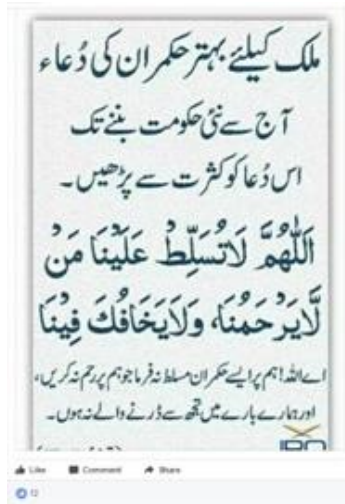 ملک کیلئے بہتر حکمران کی دُعاء
آج سے نئی حکومت بننے تک
اس دُعا کو کثرت سے پڑھیں۔
اَللّٰهُمَّ لَاتُسَلِّطْ عَلَيْنَا مَنْ
لَّايَرْحَمُنَا، وَلَايَخَافُكَ فِيْنَا
اے اللہ! ہم پر ایسے حکمران مسلط نہ فرما جو ہم پر رحم نہ کریں،
اور ہمارے بارے میں تجھ سے ڈرنے والے نہ ہوں۔
Like Comment Share
12